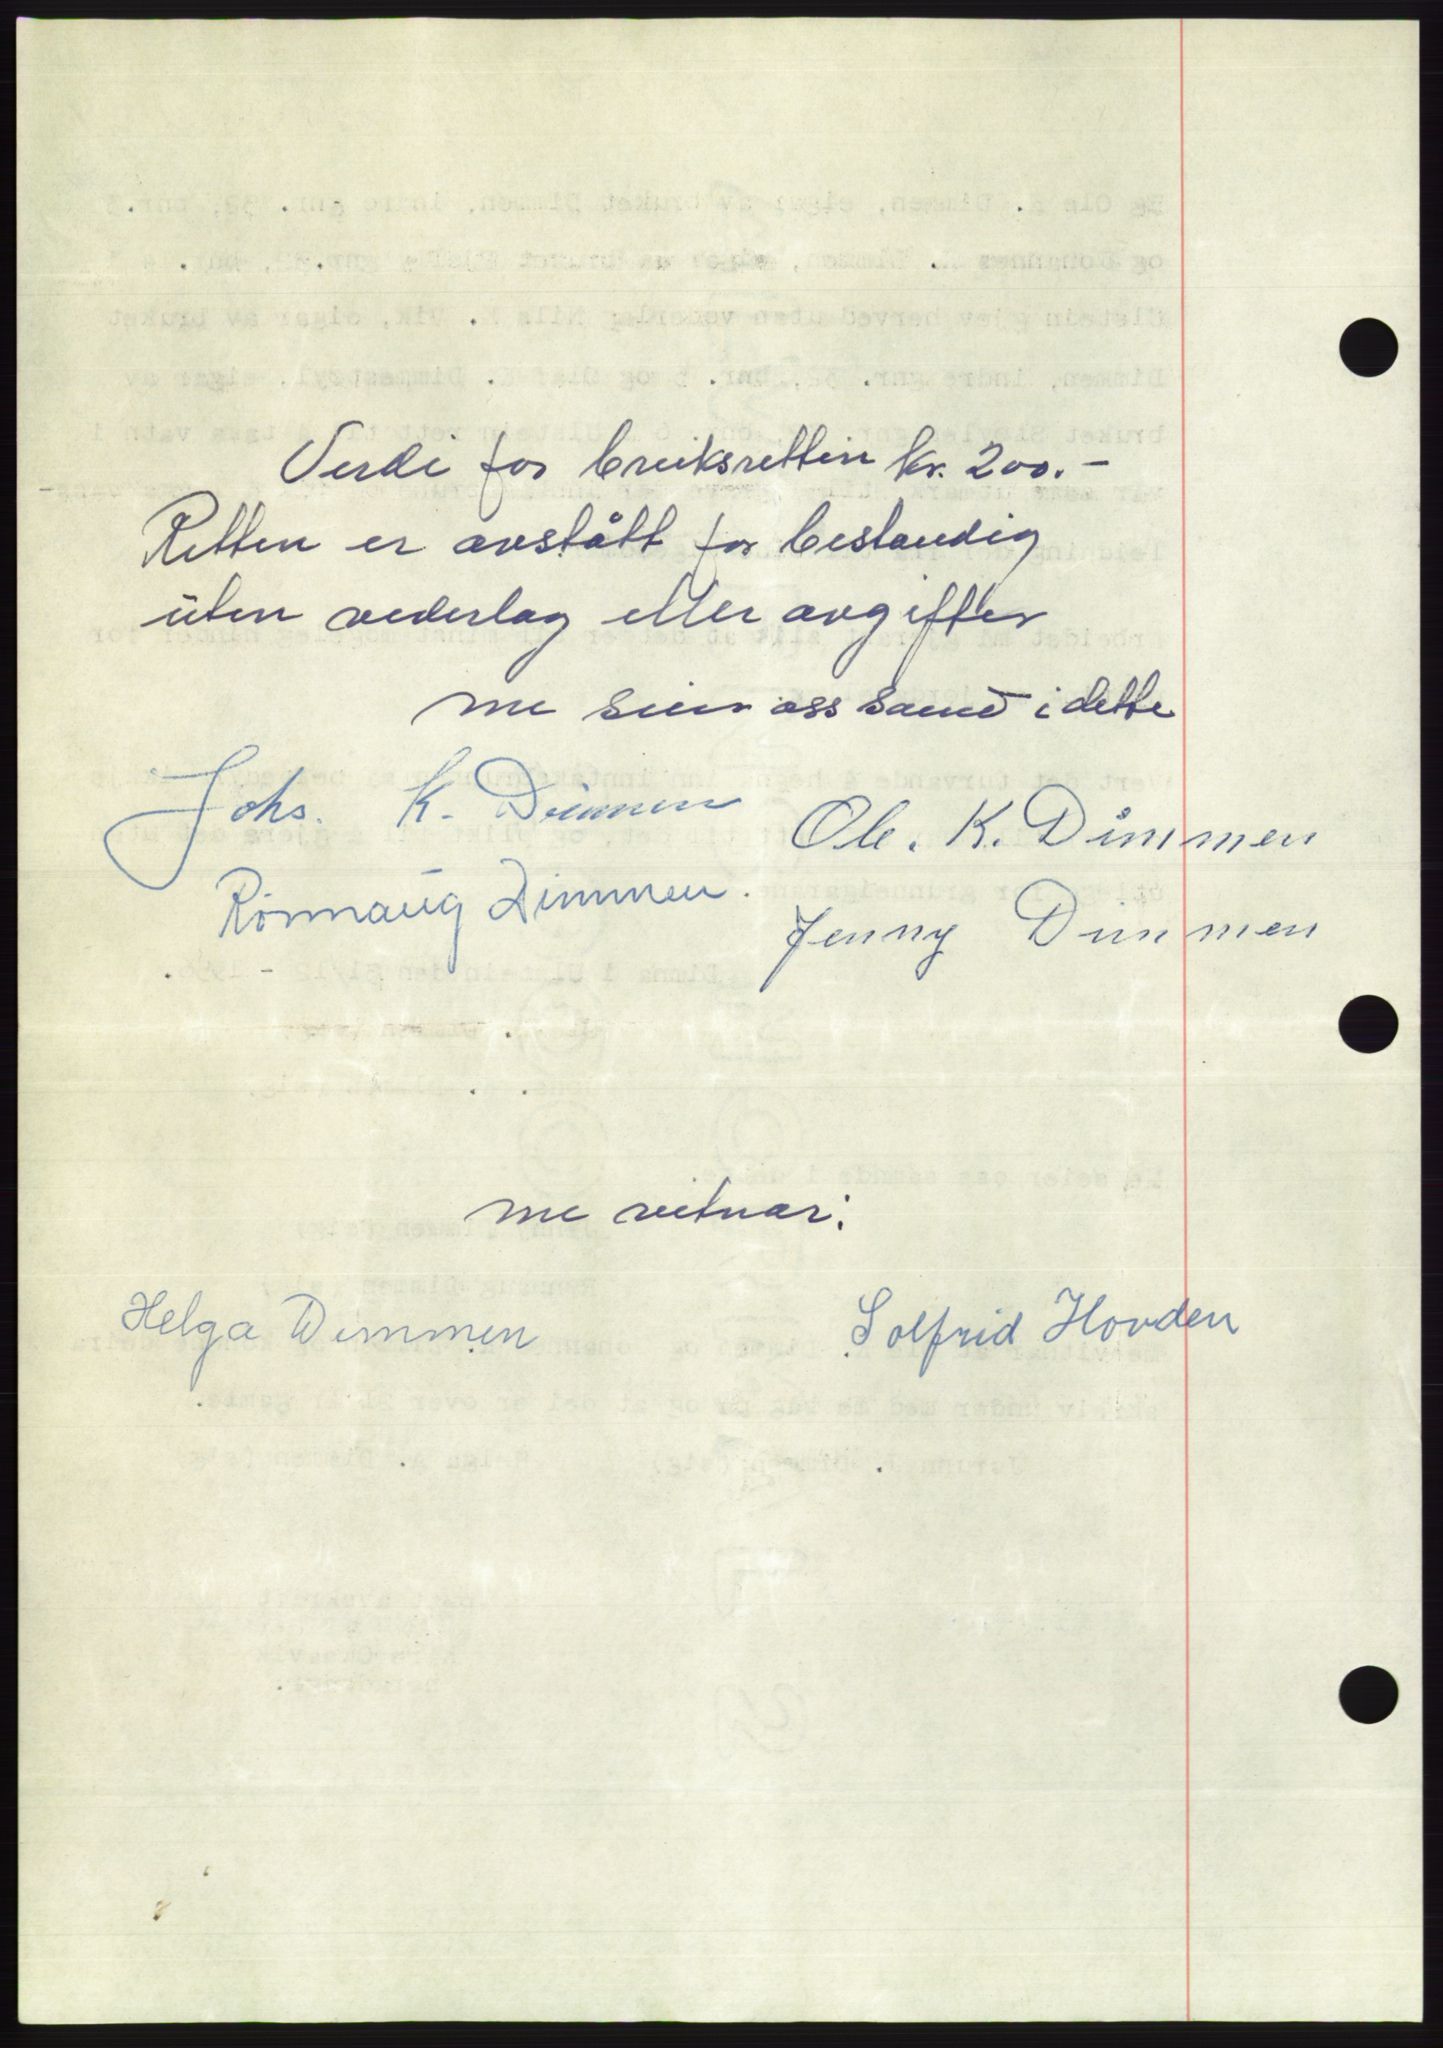 Verdi for bruksretten kr. 200.-
Retten er avstått for bestandig
uten vederlag eller avgifter
me seier oss samd i dette
Johs. K. Dimmen
Ole. K. Dimmen
Rønnaug Dimmen.
Jenny Dimmen
me vitnar:
Helga Dimmen
Solfrid Hovden